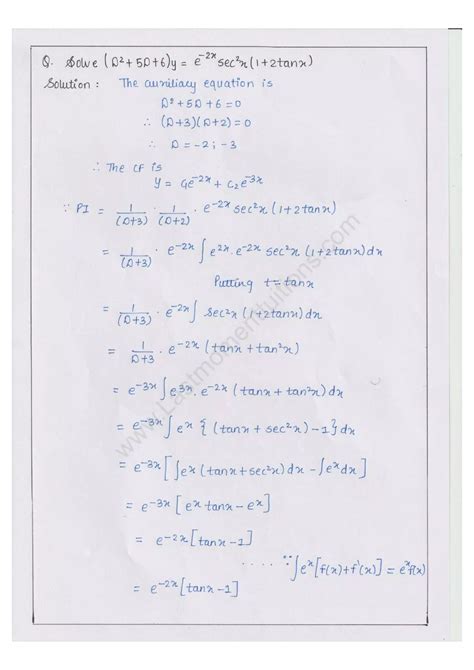 Q. Solve (D²+5D+6)y = e⁻²ˣ sec²x (1+2tanx)
Solution : The auxiliary equation is
D²+5D+6=0
∴ (D+3)(D+2)=0
∴ D = -2; -3
∴ The CF is
y = C₁e⁻²ˣ + C₂e⁻³ˣ
∵ PI = 1/(D+3) · 1/(D+2) · e⁻²ˣ sec²x (1+2tanx)
= 1/(D+3) · e⁻²ˣ ∫ e²ˣ. e⁻²ˣ sec²x (1+2tanx) dx
Putting t=tanx
= 1/(D+3) · e⁻²ˣ ∫ sec²x (1+2tanx) dx
= 1/D+3 · e⁻²ˣ (tanx + tan²x)
= e⁻³ˣ ∫ e³ˣ. e⁻²ˣ (tanx + tan²x) dx
= e⁻³ˣ ∫ eˣ { (tanx + sec²x) -1 } dx
= e⁻³ˣ [ ∫ eˣ (tanx + sec²x) dx - ∫ eˣ dx ]
= e⁻³ˣ [ eˣ tanx - eˣ ]
= e⁻²ˣ [tanx - 1]
.... ∵ ∫ eˣ [f(x)+f'(x)] = eˣ f(x)
= e⁻²ˣ [tanx - 1]
www.Lastmomenttuitions.com